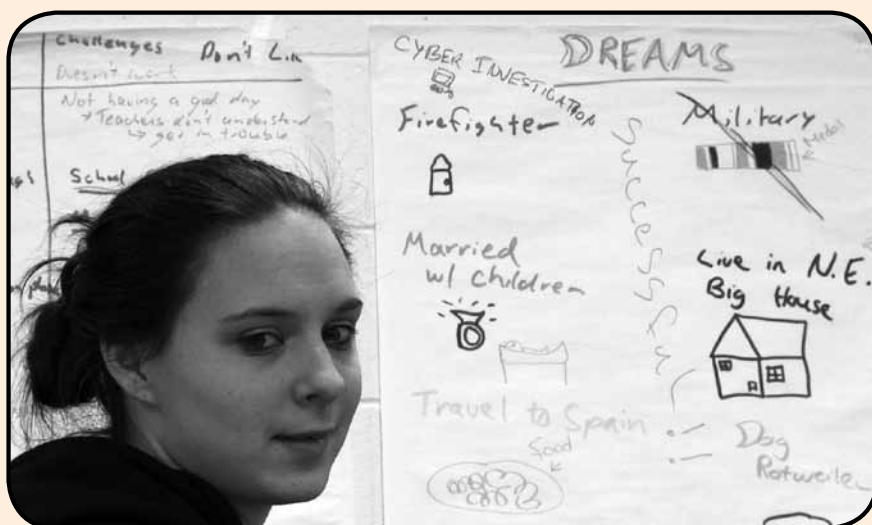 challenges
Don't
Doesn't work
Not having a good day
Teachers don't understand
get in trouble
School
DREAMS
CYBER INVESTIGATION
Firefighter
Military
Medal
Successful
Married
w/ children
Live in N.E.
Big House
Travel to Spain
food
Dog
Rotweiler